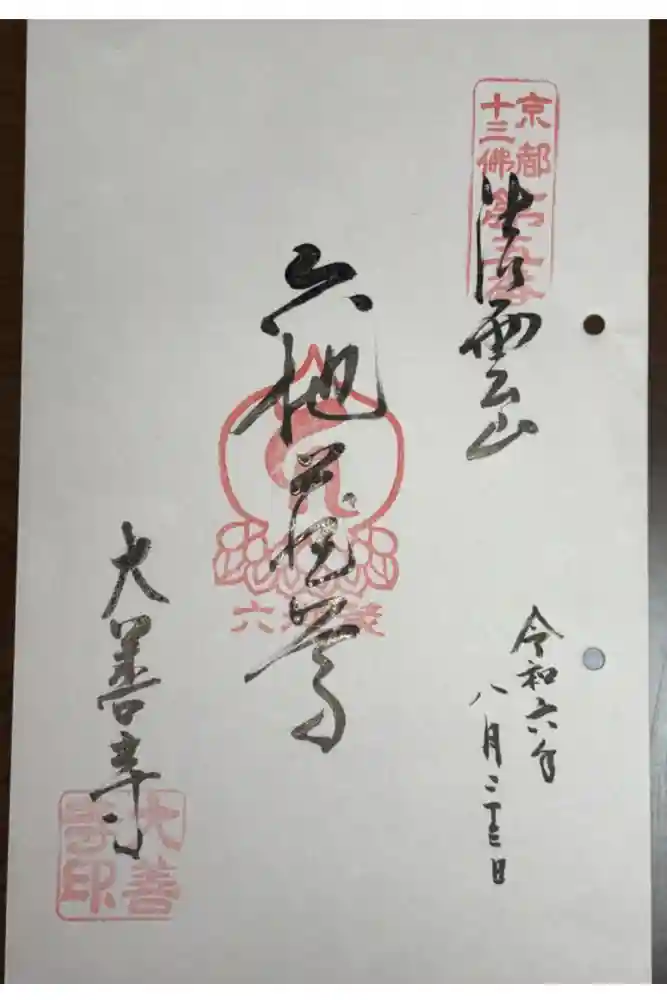 京都
十三佛第五番
法雲山
令和六年
八月二十三日
六地蔵尊
六地蔵
大善寺
大善
寺印